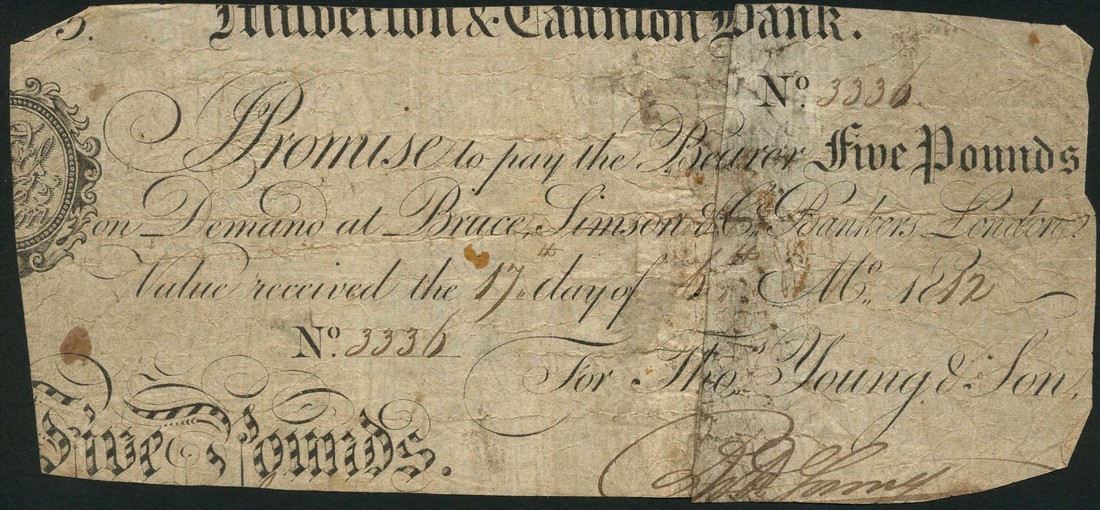 Milverton & Taunton Bank.
No. 3336
I Promise to pay the Bearer Five Pounds
on Demand at Bruce, Simson & Co. Bankers London
Value received the 17th day of Mo. 1812
No. 3336
For Thos. Young & Son,
Five Pounds.